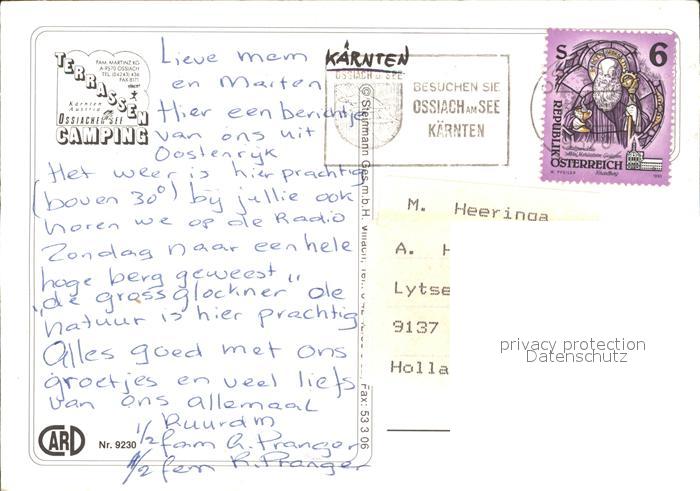 FAM. MARTINZ KG
A-9570 OSSIACH
TEL. (04243) 436
FAX 8171
TERRASSEN
Kärnten
Austria
OSSIACHER SEE
CAMPING
Lieve mem
en Marten
Hier een berichtje
van ons uit
Oostenrijk
Het weer is hier prachtig
(boven 30°) bij jullie ook
horen we op de Radio
Zondag naar een hele
hoge berg geweest "
"de grossglockner de
natuur is hier prachtig
Alles goed met ons
groetjes en veel liefs
van ons allemaal
Ruurdm
1/2 fam A. Pranger
1/2 fem R. Pranger
CARD
Nr. 9230
© Steinmann Ges.m.b.H. Villach, Tel.
Fax: 53 3 06
KÄRNTEN
OSSIACH am SEE
BESUCHEN SIE
OSSIACH AM SEE
KÄRNTEN
S 6
REPUBLIK
ÖSTERREICH
M. Heeringa
A. H
Lytse
9137
Holla
privacy protection
Datenschutz